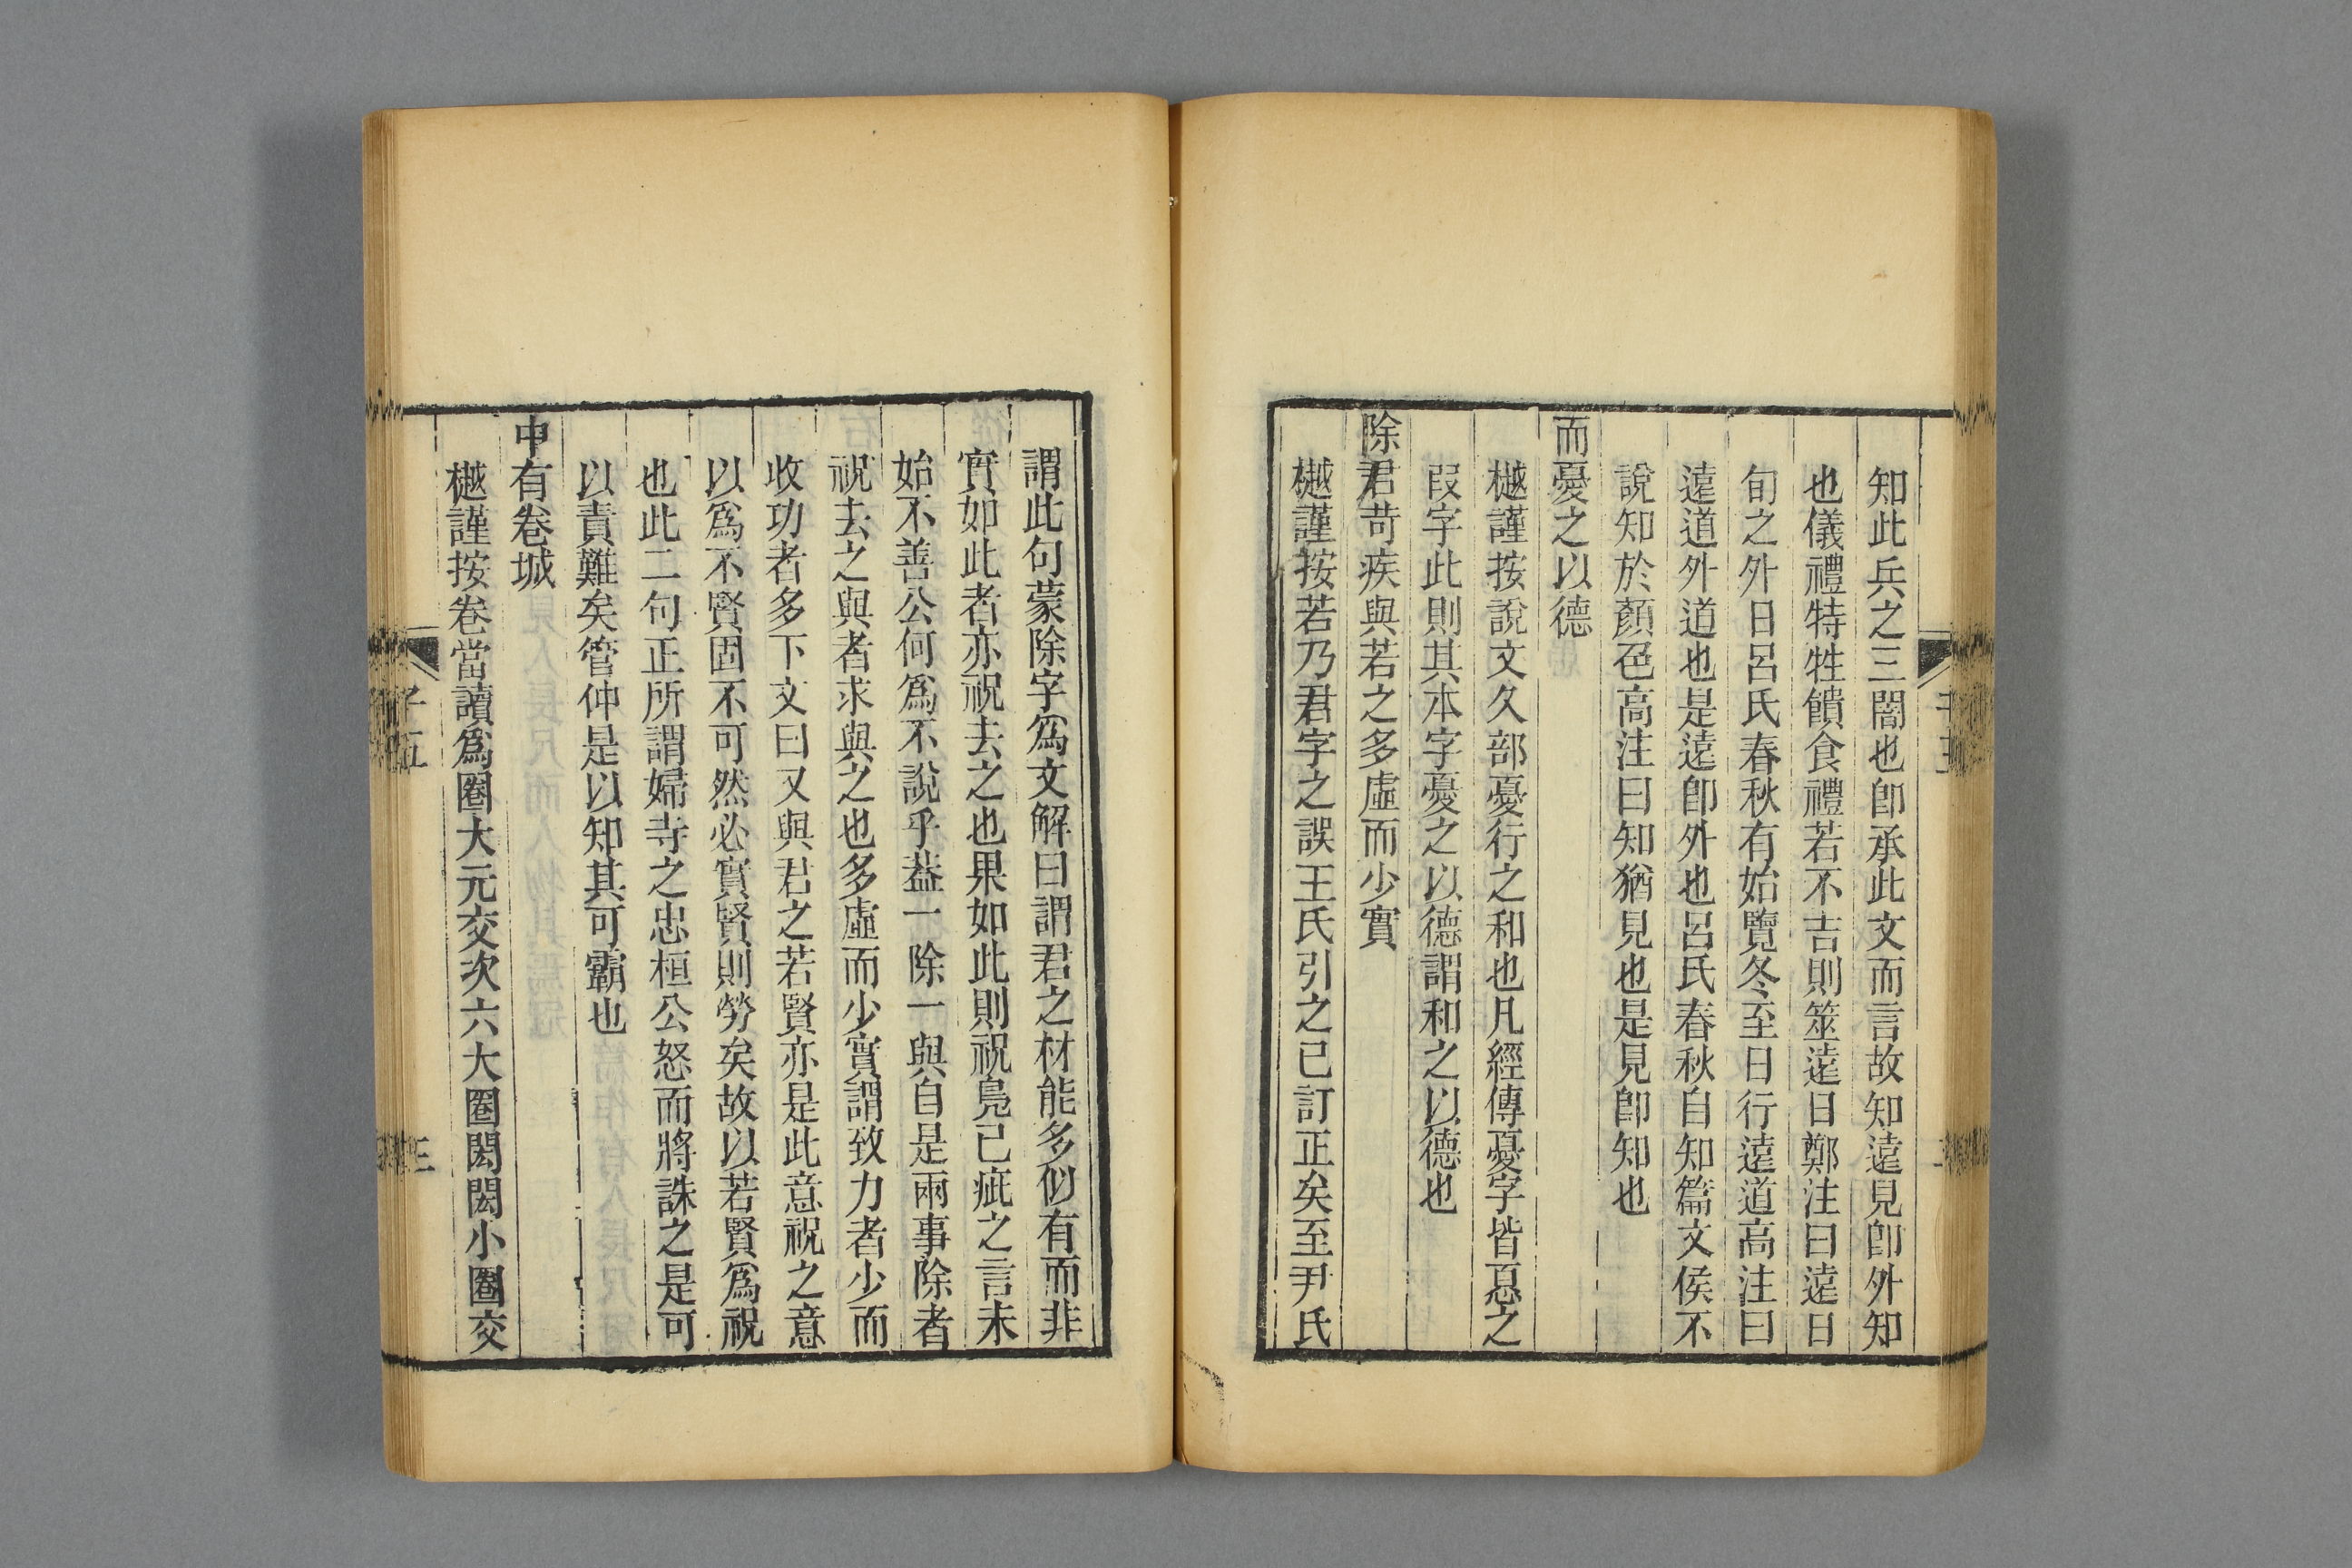 知此兵之三闇也卽承此文而言故知遠見卽外知
也儀禮特牲饋食禮若不吉則筮遠日鄭注曰遠日
旬之外日呂氏春秋有始覽冬至日行遠道高注曰
遠道外道也是遠卽外也呂氏春秋自知篇文侯不
說知於顏色高注曰知猶見也是見卽知也
而憂之以德
樾謹按說文夂部憂行之和也凡經傳憂字皆㥑之
叚字此則其本字憂之以德謂和之以德也
除君苛疾與若之多虛而少實
樾謹按若乃君字之誤王氏引之已訂正矣至尹氏
謂此句蒙除字爲文解曰謂君之材能多似有而非
實如此者亦祝去之也果如此則祝鳧已疵之言未
始不善公何爲不說乎葢一除一與自是兩事除者
祝去之與者求與之也多虛而少實謂致力者少而
收功者多下文曰又與君之若賢亦是此意祝之意
以爲不賢固不可然必實賢則勞矣故以若賢爲祝
也此二句正所謂婦寺之忠桓公怒而將誅之是可
以責難矣管仲是以知其可霸也
中有卷城
樾謹按卷當讀爲圈大元交次六大圈閎閎小圈交
子五
三